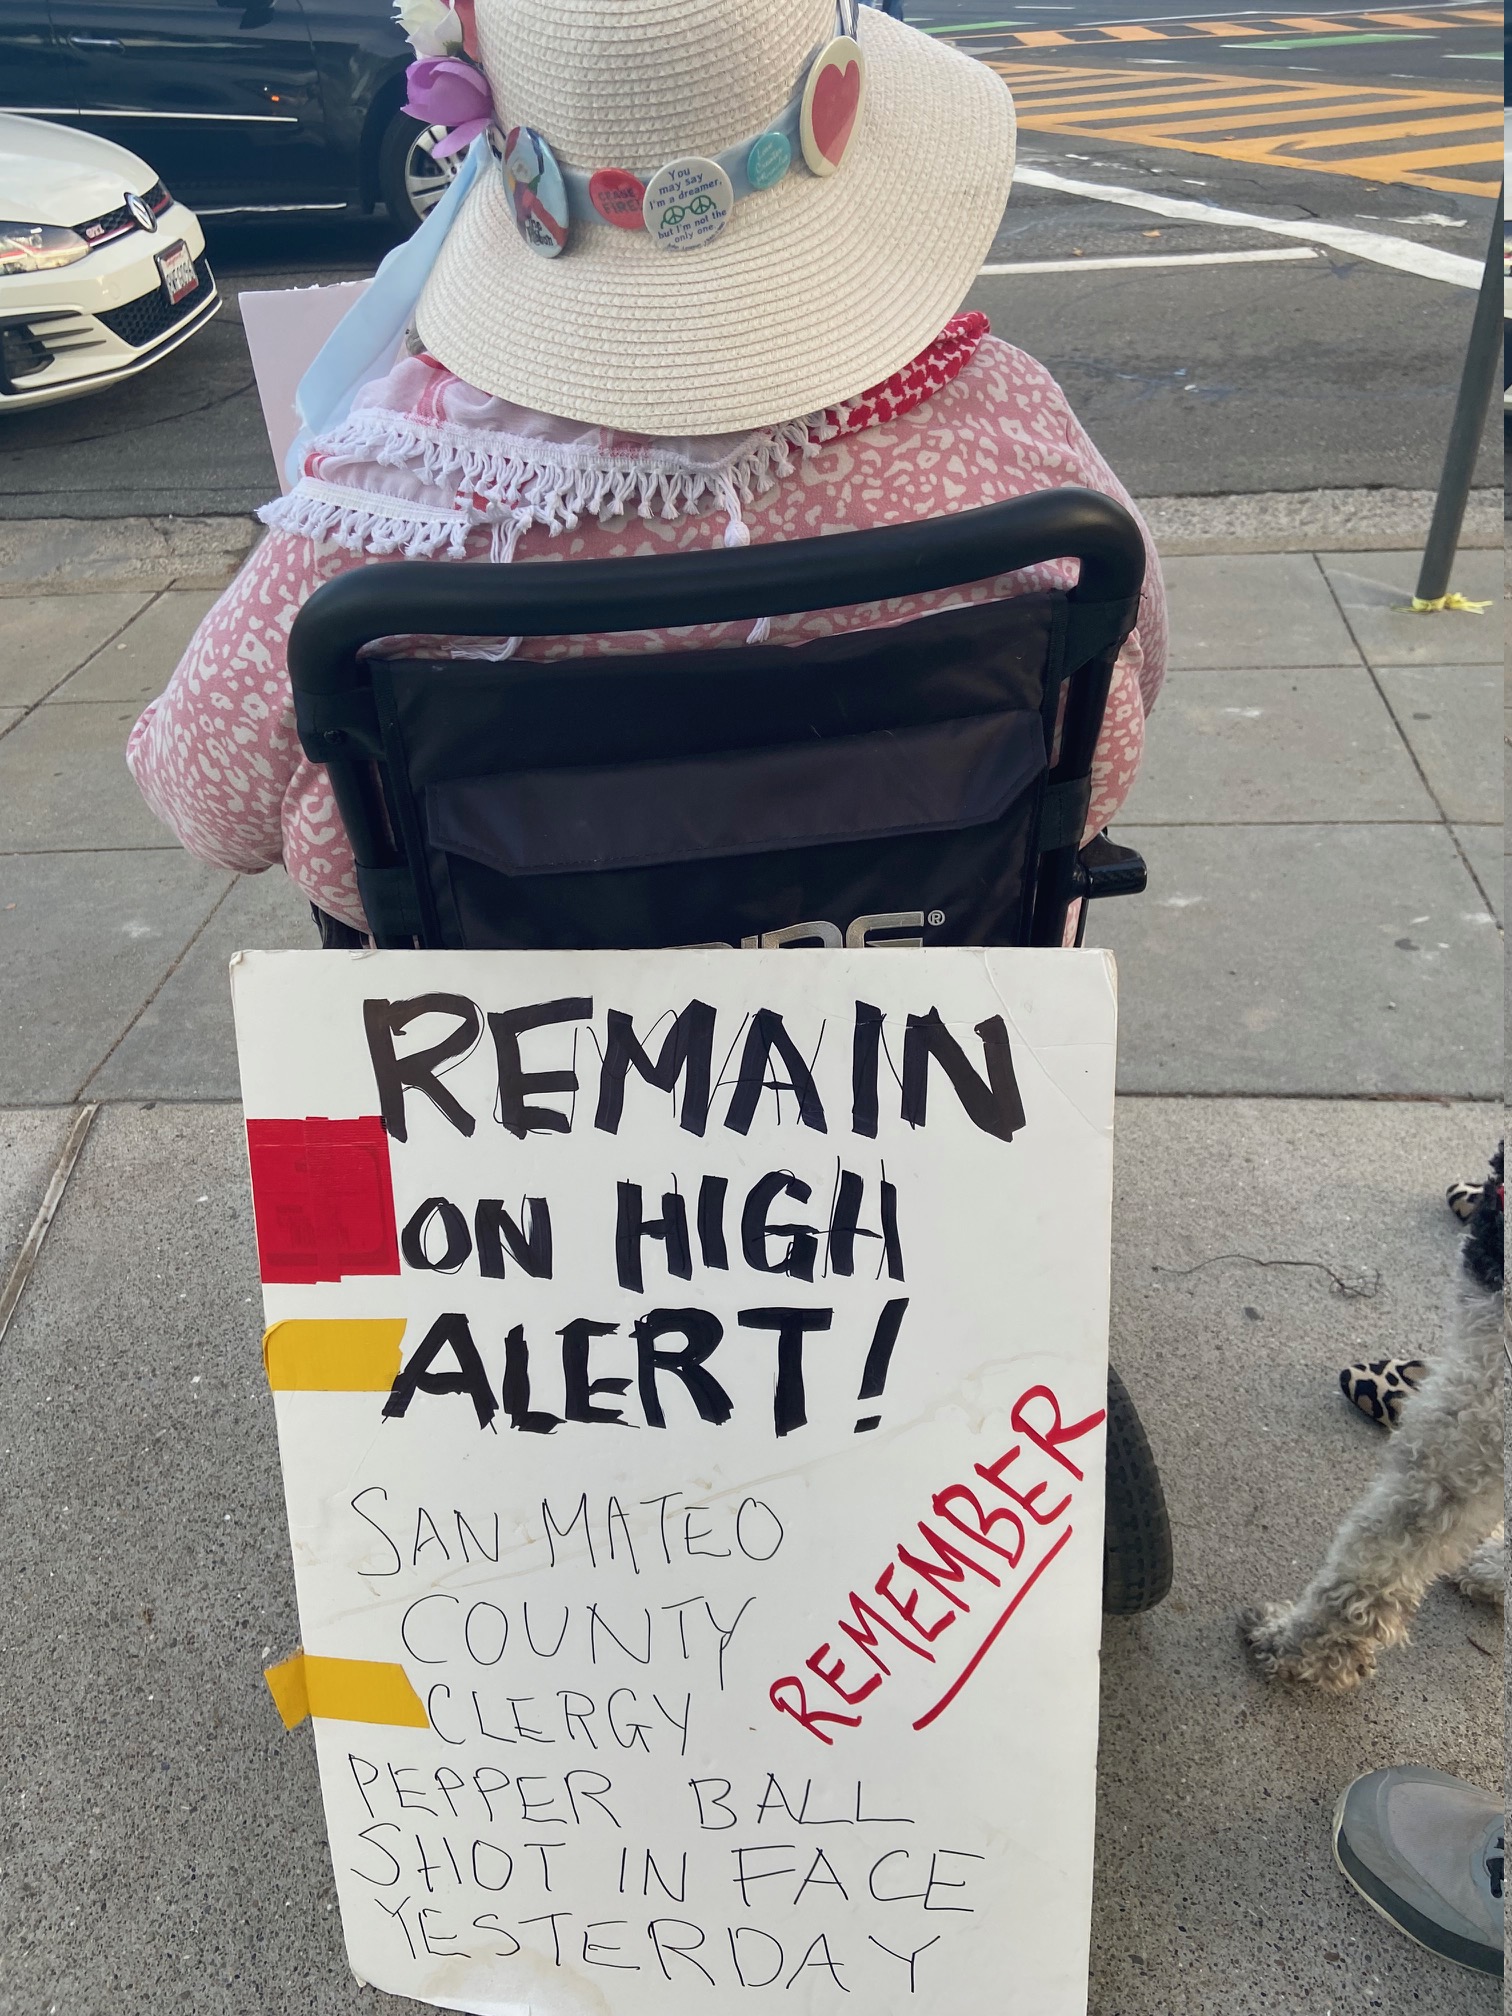 CEASE
FIRE!
You
may say
I'm a dreamer,
but I'm not the
only one.
GTI
®
REMAIN
ON HIGH
ALERT!
SAN MATEO
COUNTY
CLERGY
REMEMBER
PEPPER BALL
SHOT IN FACE
YESTERDAY